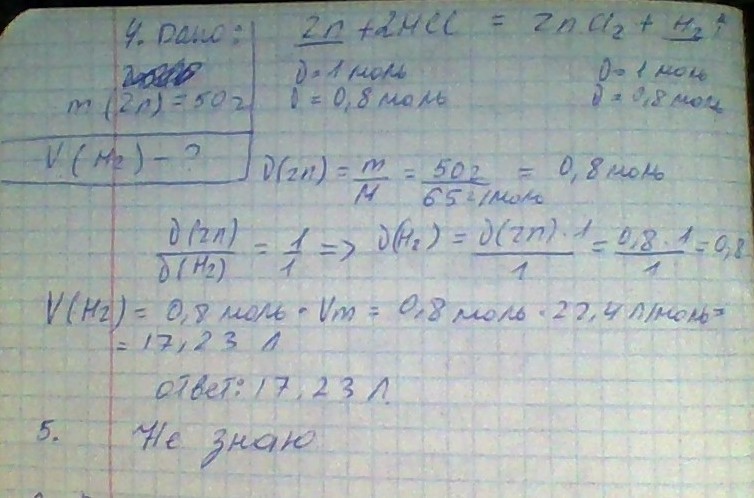 4. Дано: Zn + 2HCl = ZnCl2 + H2↑
m(Zn) = 50 г
ν = 1 моль ν = 1 моль
ν = 0,8 моль ν = 0,8 моль
V(H2) - ?
ν(Zn) = m/M = 50 г/65 г/моль = 0,8 моль
ν(Zn)/ν(H2) = 1/1 => ν(H2) = ν(Zn)·1/1 = 0,8·1/1 = 0,8
V(H2) = 0,8 моль · Vm = 0,8 моль · 22,4 л/моль =
= 17,23 л
ответ: 17,23 л.
5. Не знаю